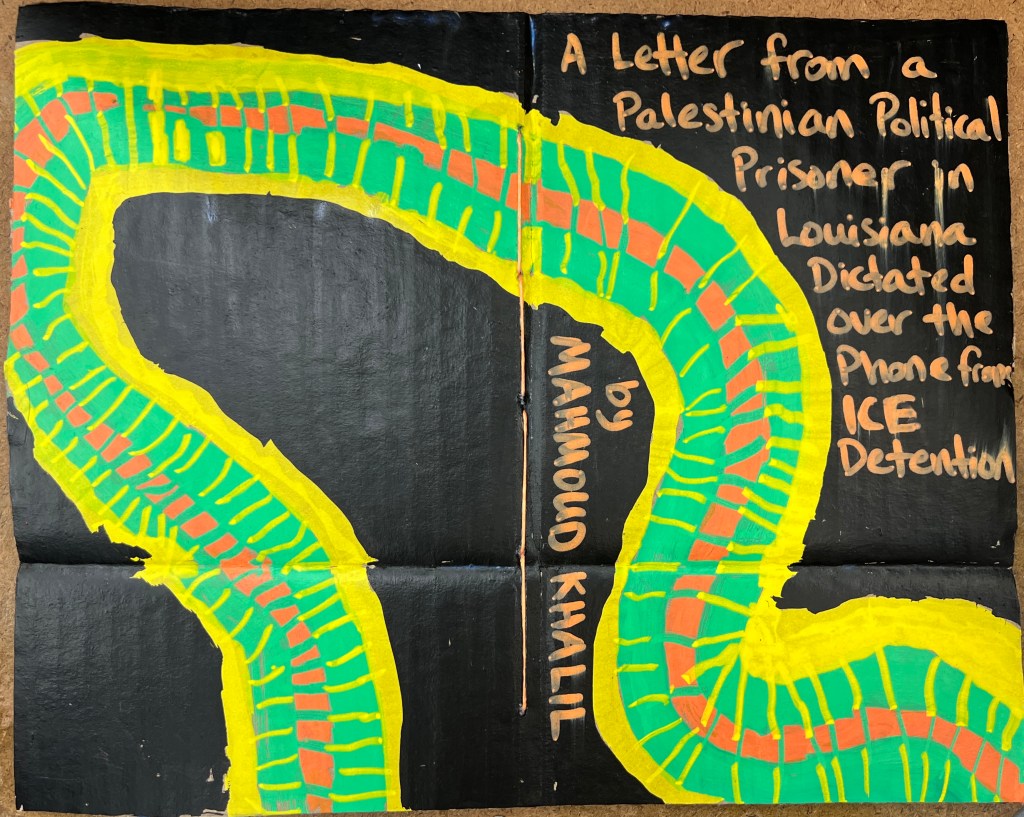 A Letter from a
Palestinian Political
Prisoner in
Louisiana
Dictated
over the
Phone from
ICE
Detention
by
MAHMOUD KHALIL